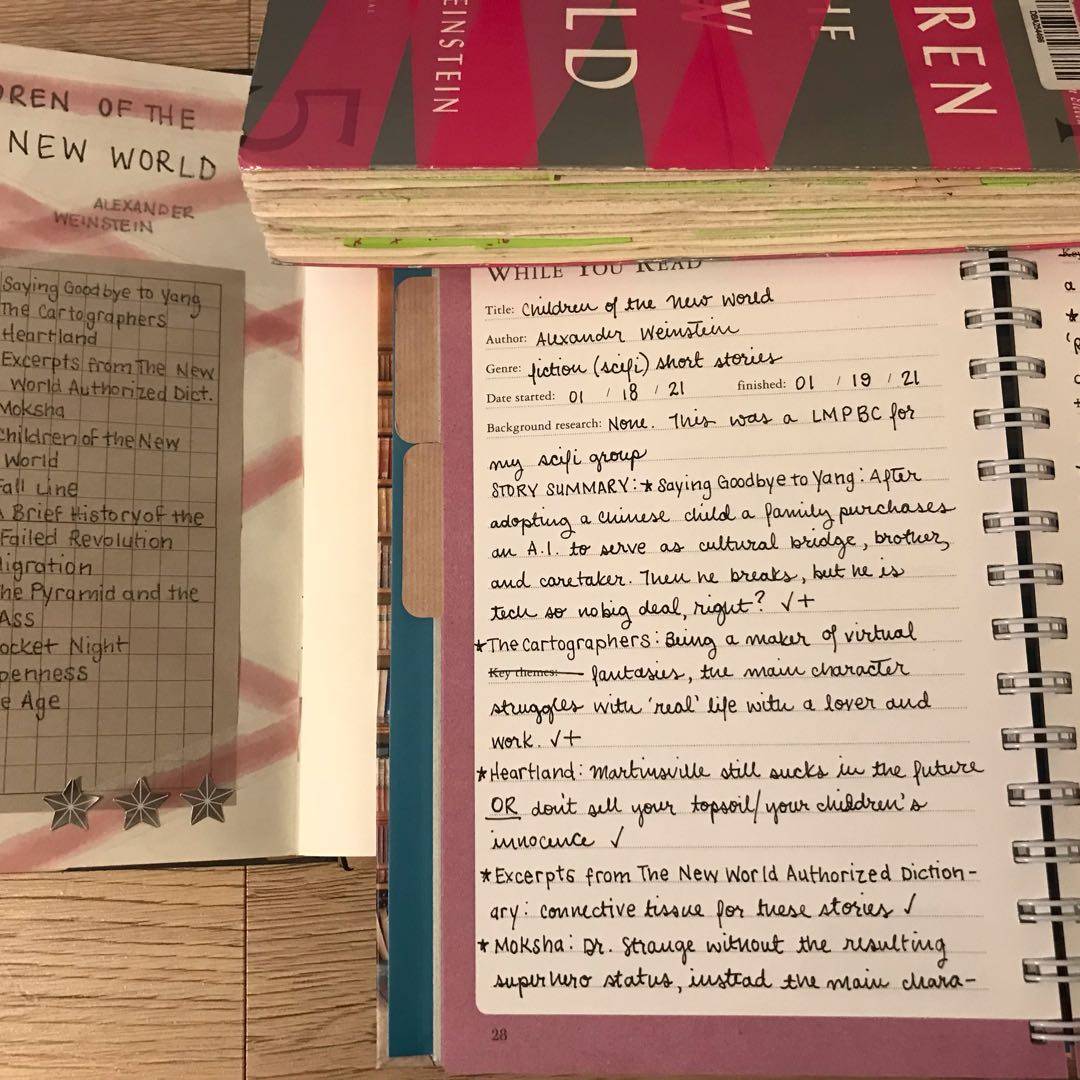 EINSTEIN
LD
W
HE
REN
5
DREN OF THE
NEW WORLD
ALEXANDER
WEINSTEIN
Saying Goodbye to Yang
The Cartographers
Heartland
Excerpts from The New
World Authorized Dict.
Moksha
Children of the New
World
Fall Line
A Brief History of the
Failed Revolution
Migration
The Pyramid and the
ASS
ocket Night
penness
e Age
WHILE YOU READ
Title: Children of the New World
Author: Alexander Weinstein
Genre: fiction (scifi) short stories
Date started: 01 / 18 / 21 finished: 01 / 19 / 21
Background research: None. This was a LMPBC for
my scifi group
STORY SUMMARY: ★ Saying Goodbye to Yang: After
adopting a Chinese child a family purchases
an A.I. to serve as cultural bridge, brother,
and caretaker. Then he breaks, but he is
tech so no big deal, right? √+
★ The Cartographers: Being a maker of virtual
Key themes: fantasies, the main character
struggles with 'real' life with a lover and
work. √+
★ Heartland: Martinsville still sucks in the future
OR don't sell your topsoil/your children's
innocence √
★ Excerpts from The New World Authorized Diction-
ary: connective tissue for these stories √
★ Moksha: Dr. Strange without the resulting
superhero status, instead the main chara-
28